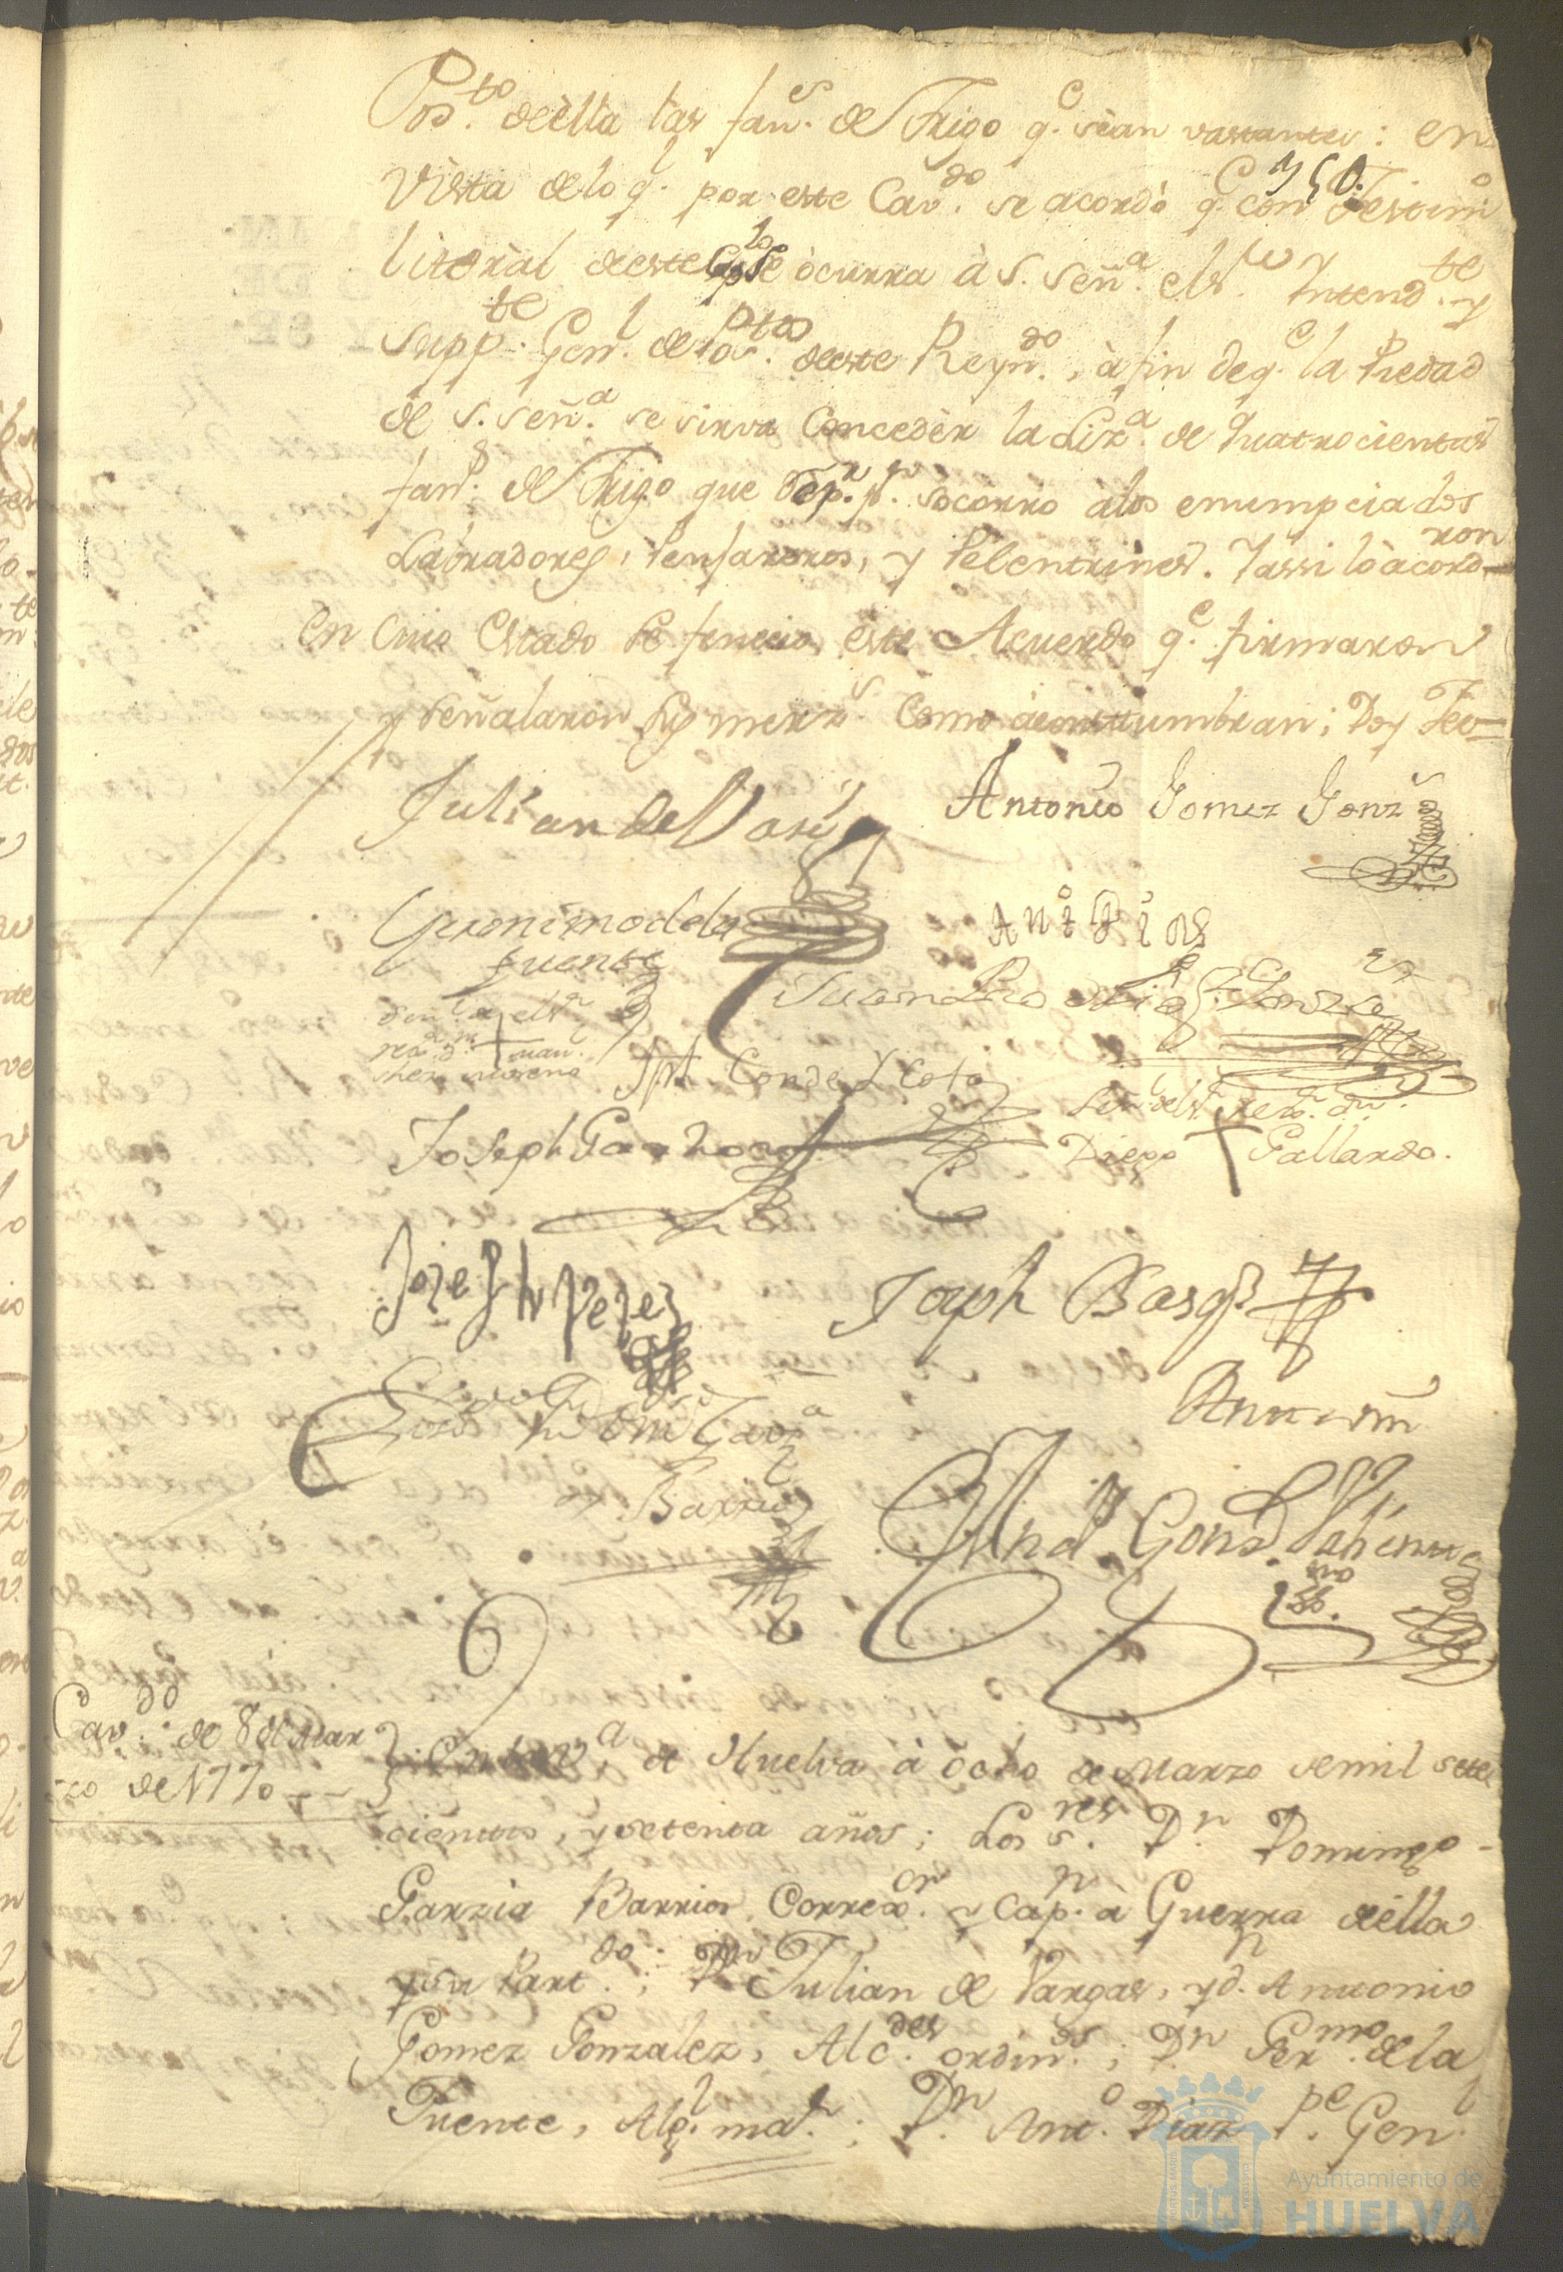 Pos.to de ella las fan.s de Trigo q.e sean vastantes: en
350.
Vista de lo q.e por este Cav.do se acordó q.e con Testim.o
literàl de este Cap.lo se òcurra à S. Señ.a el S.r Intend.te y
supp.te Gen.l de Pos.tos de este Reyn.do, à fin de q.e la Piedad
de S. Señ.a se sirva Concedèr la Liz.a de quatrocientas
fan.s de Trigo que Rep.n p.a socorro à los enumpciados
Labradores, Pensareros, y Pelentrines. Y assi lo àcord=
ron
En Cuio Estado se feneciò este Acuerdo q.e firmaron
y señalaron sus merz.s Como àcostumbran; Doy Feè=
Julian de Vargas
Antonio Gomez Gonz.s
Geronimo de la
fuente
Ant.o Dias
señ.l de el S.r
rex.or D.n + man.l
sher moreno
Ant. Conde y Cota
Señ.l del S.r rex.or D.n
Diego + Gallardo.
Joseph Garzia
Joze Ph Perez
Joseph Basq.s
D.n Dom.o Garz.a
y Barrios
Ante mi
And.s Gonz.
ss.no
Cav.do de 8 de Mar
zo de 1770
En la V.a de Huelva à ocho de Marzo de mil sete
cientos, y setenta años; Los S.res D.n Domingo
Garzia Barrios Correx.or y Cap.n à Guerra de ella
y su Part.do; D.n Julian de Vargas, y d. Antonio
Gomez Gonzalez, Alc.des ordin.os; D.n Ger.mo de la
Fuente, Alg.l ma.r; D.n Ant.o Diaz P.e Gen.l
Ayuntamiento de
HUELVA